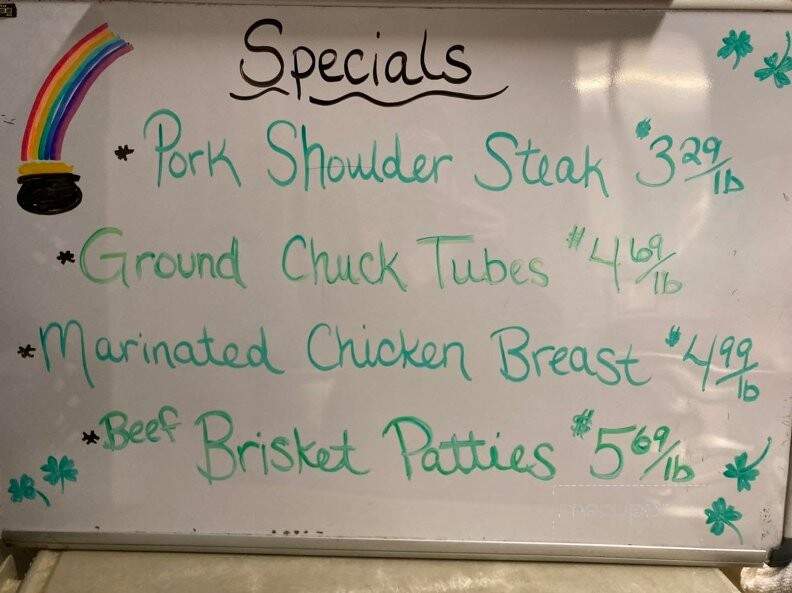 Specials
* Pork Shoulder Steak $3 29/lb
* Ground Chuck Tubes $4 69/lb
* Marinated Chicken Breast $4 99/lb
* Beef Brisket Patties $5 69/lb